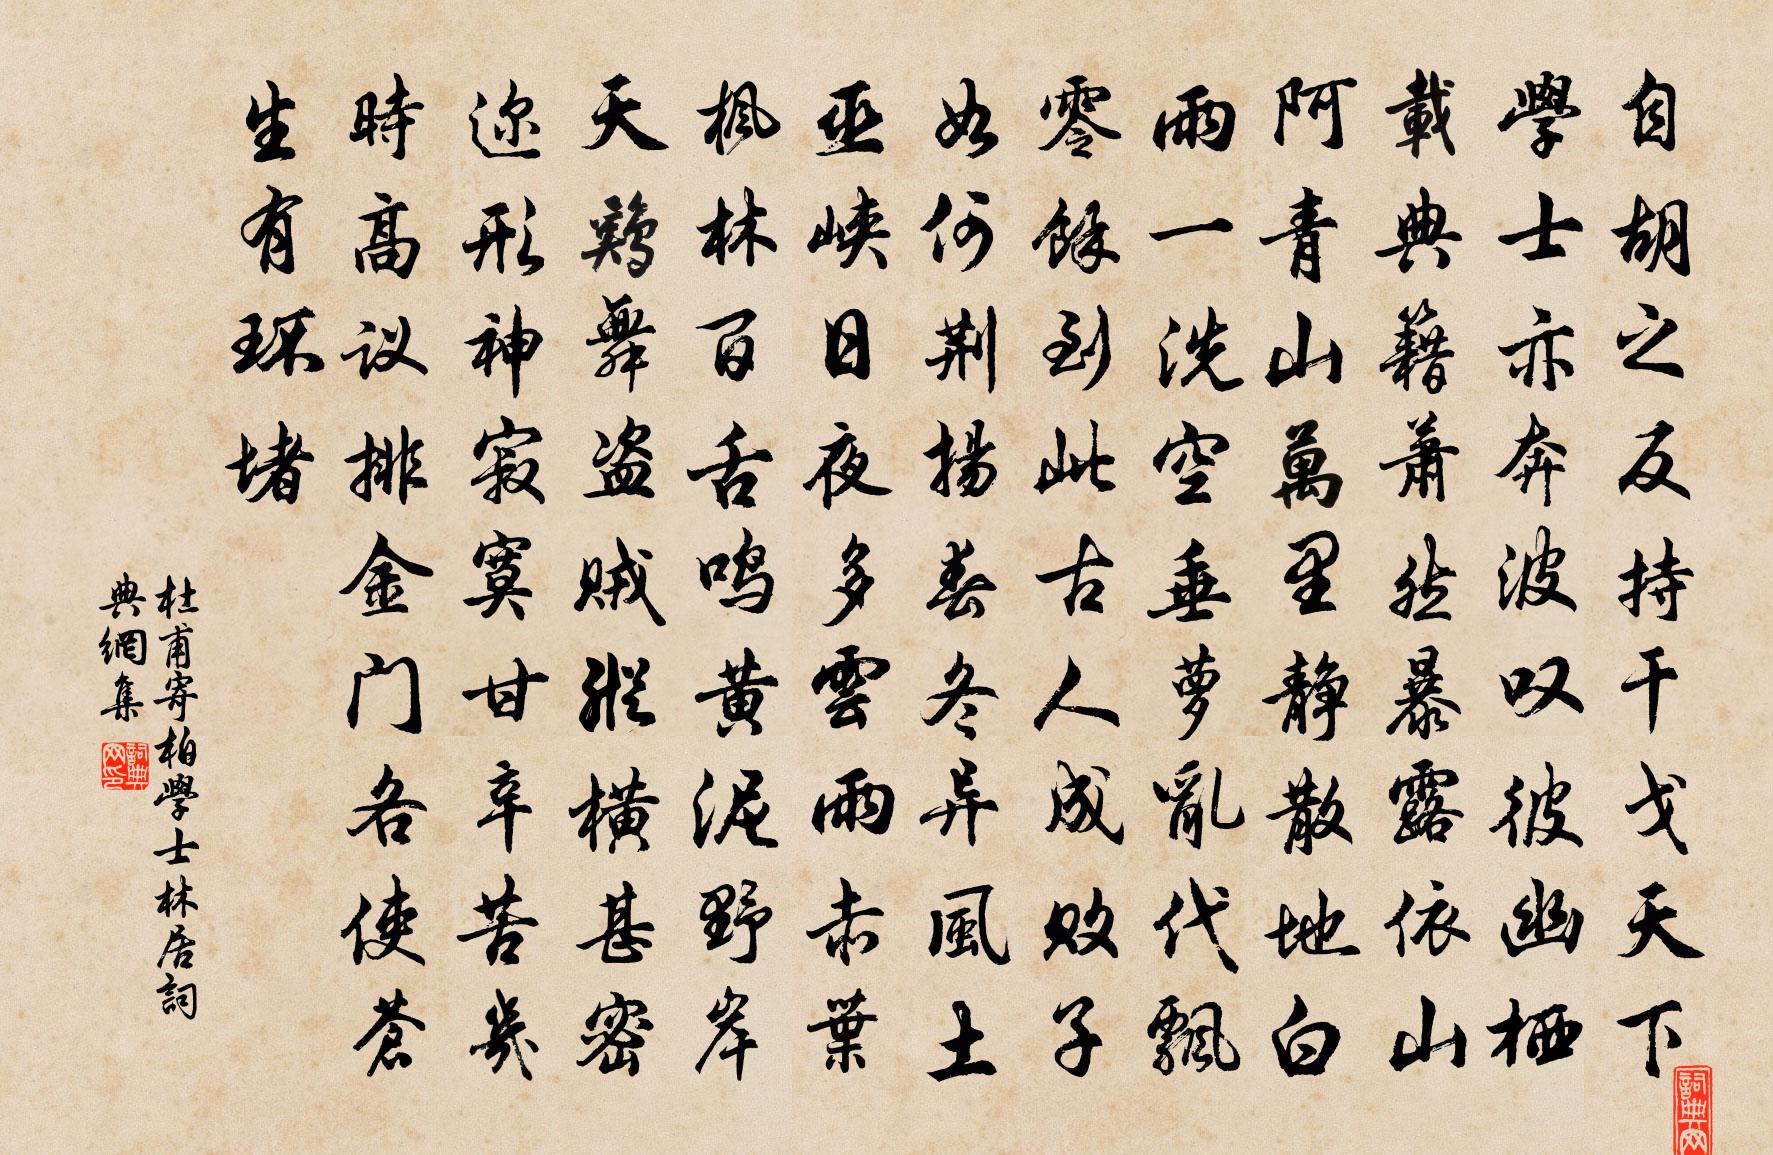 自胡之反持干戈天下
學士亦奔波叹彼幽栖
載典籍萧然暴露依山
阿青山萬里静散地白
雨一洗空垂萝亂代飄
零餘到此古人成敗子
如何荆揚春冬异風土
巫峡日夜多雲雨赤葉
枫林百舌鸣黄泥野岸
天鷄舞盗贼縱横甚密
迩形神寂寞甘辛苦幾
時高议排金门各使蒼
生有环堵
杜甫寄柏學士林居詞
典網集
詞典网印
詞典网